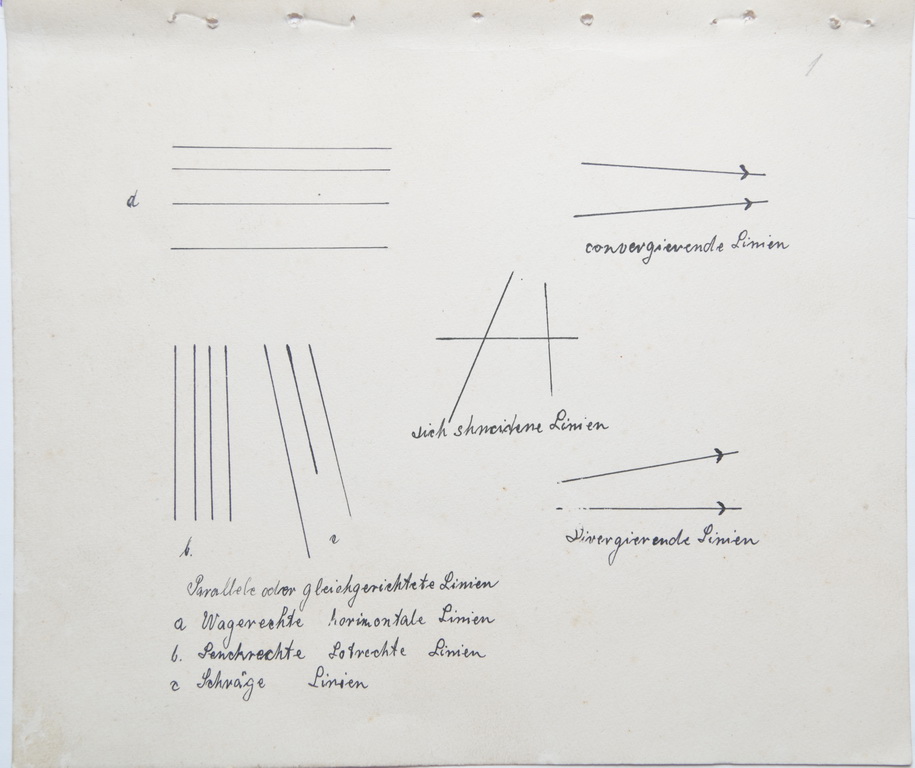 1
a
convergierende Linien
sich shneidene Linien
Divergierende Linien
b.
c
Parallele oder gleichgerichtete Linien
a Wagerechte horimontale Linien
b. Senckrechte Lotrechte Linien
c Schräge Linien